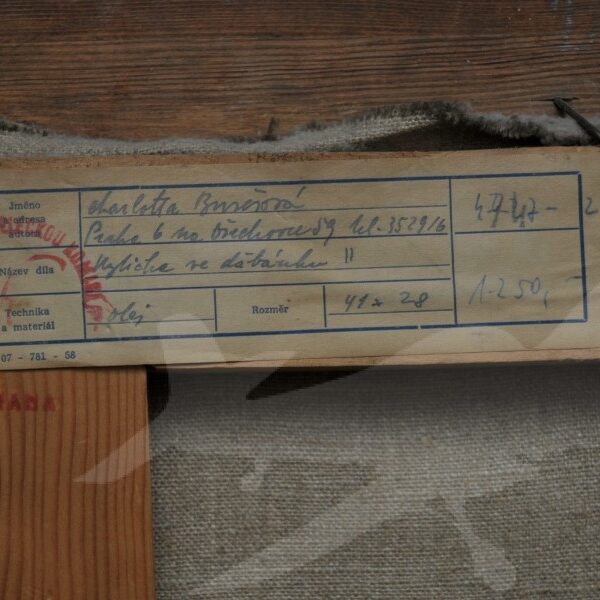 Jméno
a adresa
autora
Charlotta Burešová
Praha 6 na Ořechovce 59 tel. 352916
Název díla
Kytička ve džbánku II
Technika
a materiál
olej
Rozměr
41 x 28
1.250,-
07 - 781 - 58